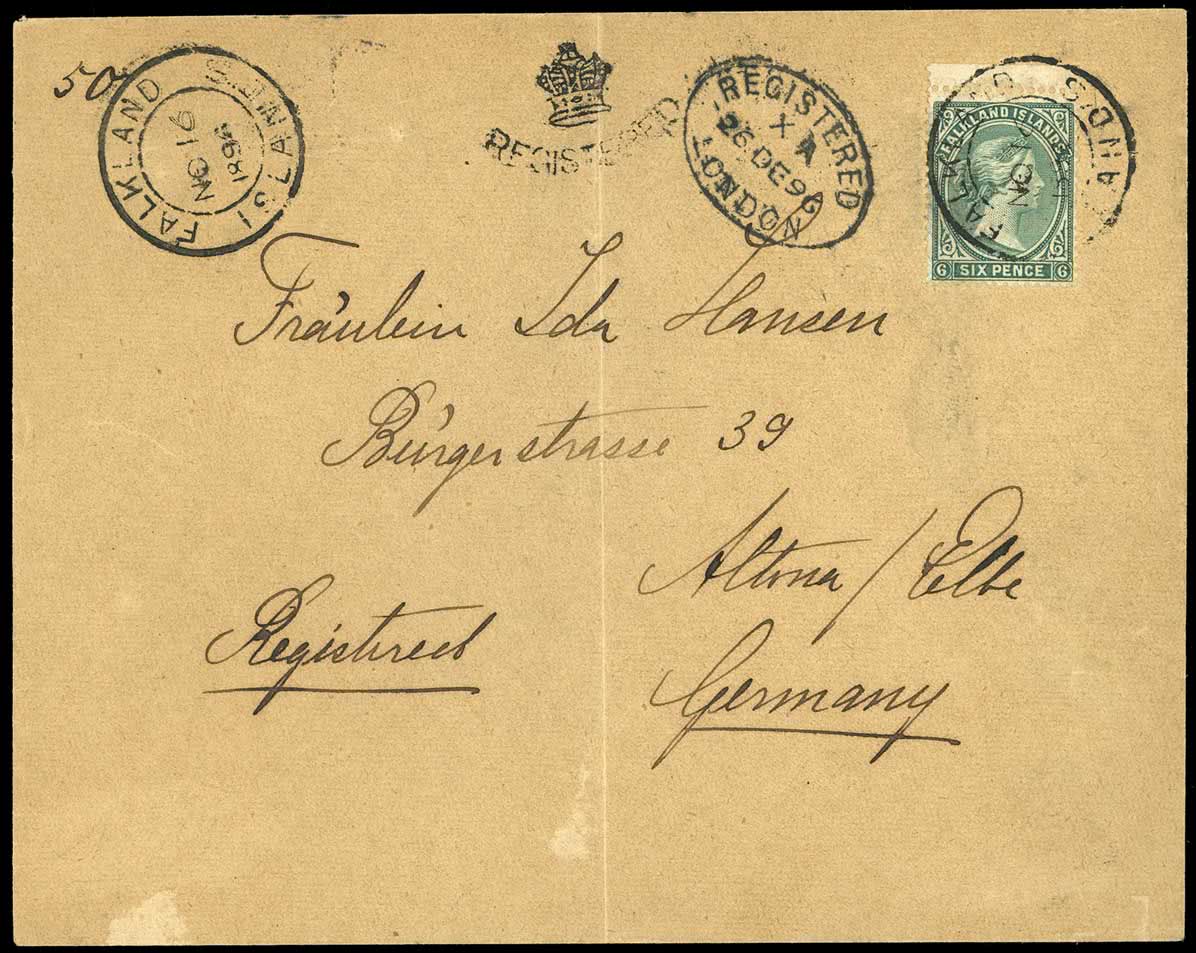 50
FALKLAND ISLANDS
NO 16
1896
REGISTERED
REGISTERED
X A
26 DE 96
LONDON
FALKLAND ISLANDS
NO
FALKLAND ISLANDS
6 SIX PENCE 6
Fräulein Ida Hansen
Bürgerstrasse 39
Altona / Elbe
Registered
Germany